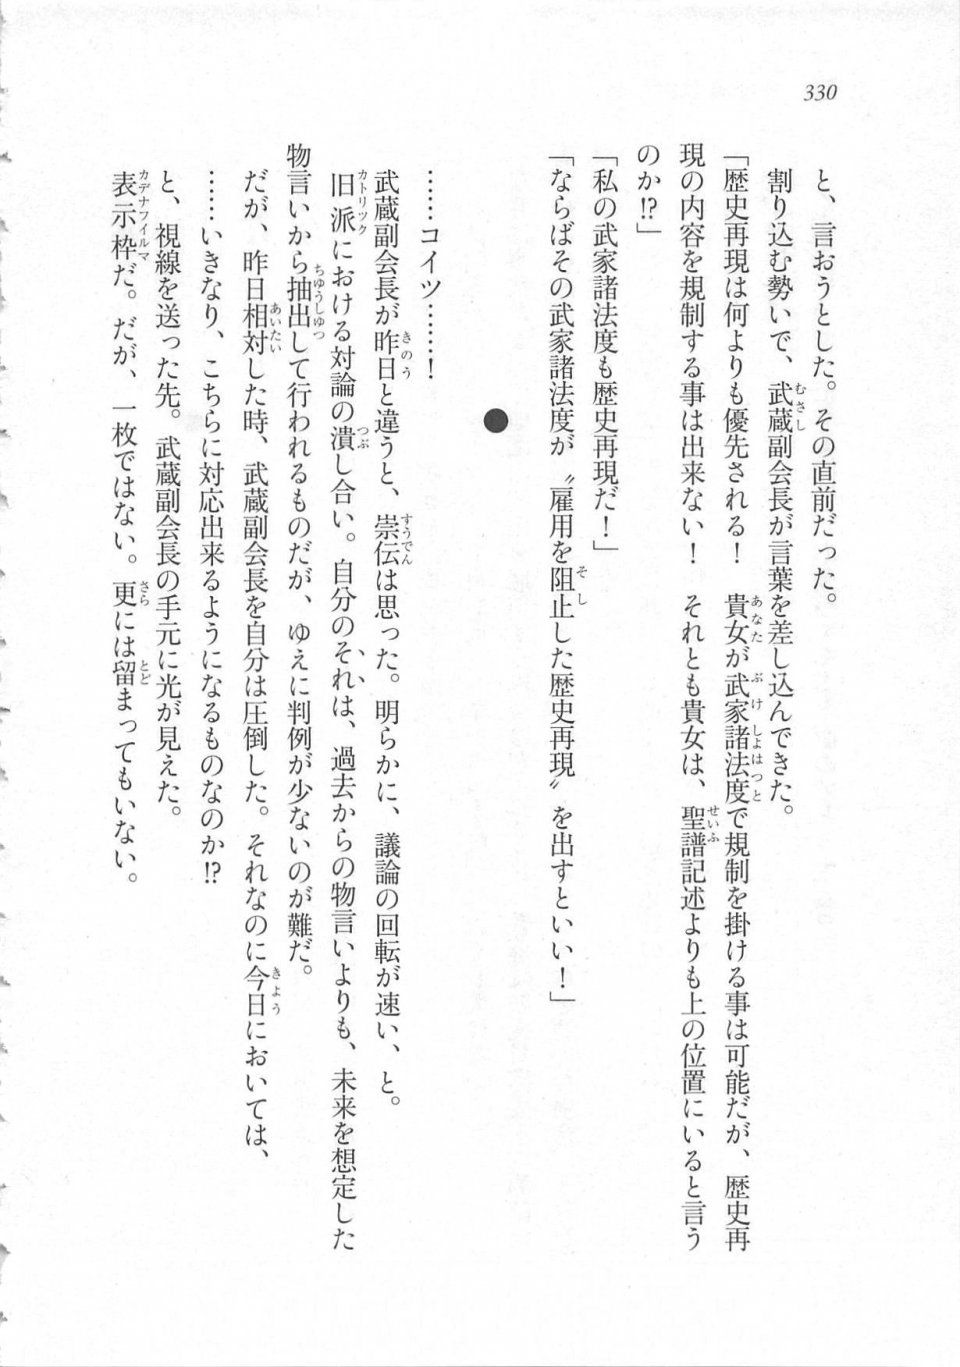 330
と、言おうとした。その直前だった。
割り込む勢いで、武蔵副会長が言葉を差し込んできた。
「歴史再現は何よりも優先される！　貴女が武家諸法度で規制を掛ける事は可能だが、歴史再
現の内容を規制する事は出来ない！　それとも貴女は、聖譜記述よりも上の位置にいると言う
のか!?」
「私の武家諸法度も歴史再現だ！」
「ならばその武家諸法度が〝雇用を阻止した歴史再現〟を出すといい！」
●
……コイツ……！
武蔵副会長が昨日と違うと、崇伝は思った。明らかに、議論の回転が速い、と。
旧派における対論の潰し合い。自分のそれは、過去からの物言いよりも、未来を想定した
物言いから抽出して行われるものだが、ゆえに判例が少ないのが難だ。
だが、昨日相対した時、武蔵副会長を自分は圧倒した。それなのに今日においては、
……いきなり、こちらに対応出来るようになるものなのか!?
と、視線を送った先。武蔵副会長の手元に光が見えた。
表示枠だ。だが、一枚ではない。更には留まってもいない。